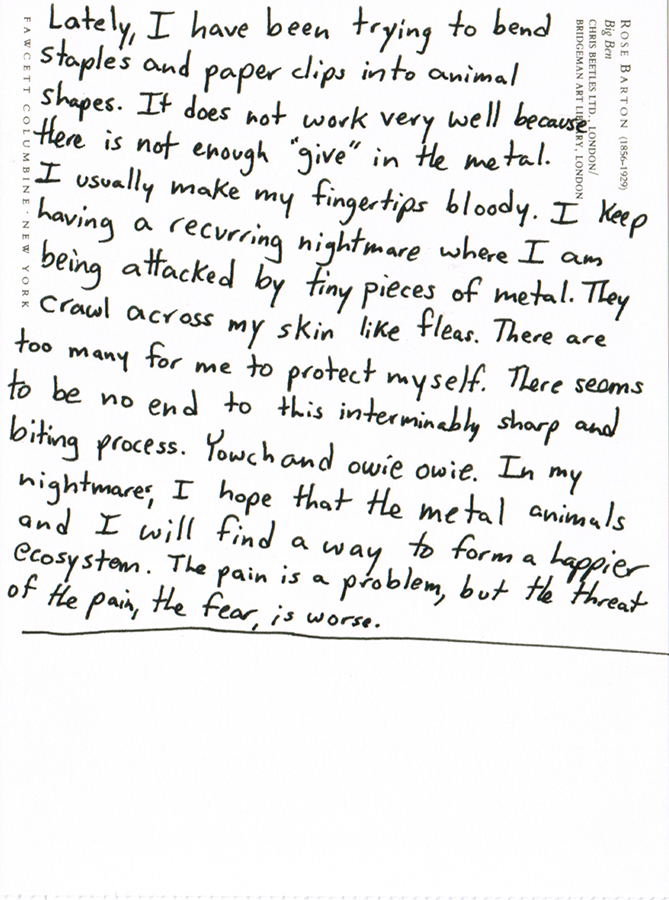 Lately, I have been trying to bend
staples and paper clips into animal
shapes. It does not work very well because
there is not enough "give" in the metal.
I usually make my fingertips bloody. I keep
having a recurring nightmare where I am
being attacked by tiny pieces of metal. They
crawl across my skin like fleas. There are
too many for me to protect myself. There seems
to be no end to this interminably sharp and
biting process. Yowch and owie owie. In my
nightmares, I hope that the metal animals
and I will find a way to form a happier
ecosystem. The pain is a problem, but the threat
of the pain, the fear, is worse.
ROSE BARTON (1856-1929)
Big Ben
CHRIS BEETLES LTD., LONDON/
BRIDGEMAN ART LIBRARY, LONDON
FAWCETT COLUMBINE · NEW YORK